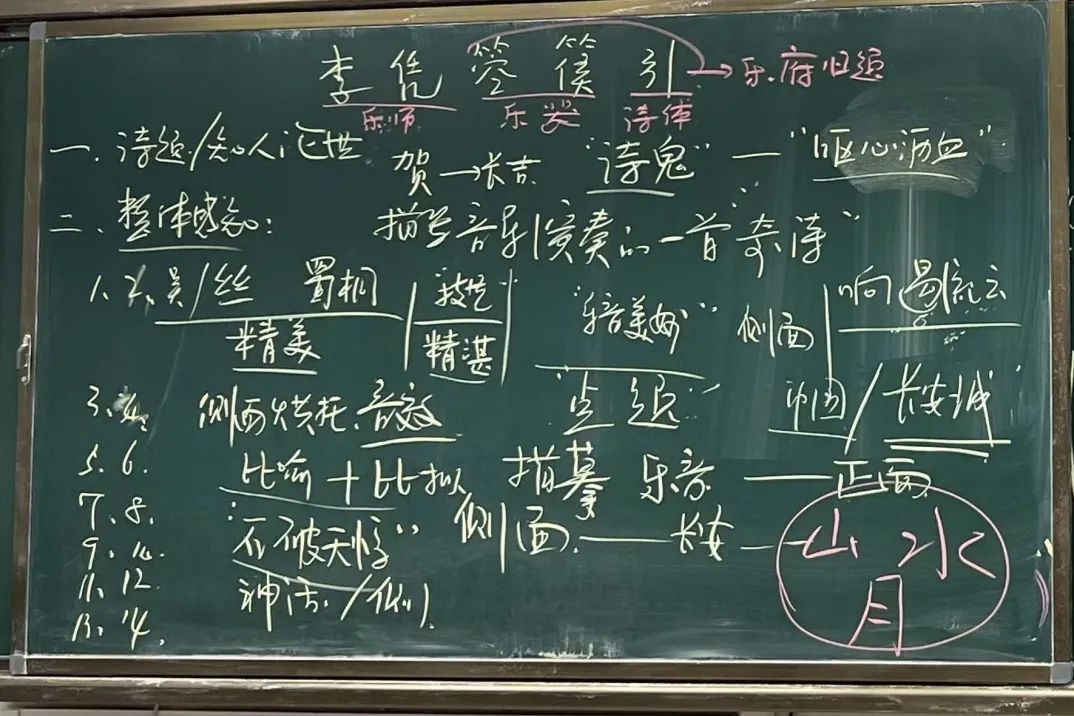 李凭箜篌引→乐府旧题
乐师 乐器 诗体
一.诗题/知人论世 贺→长吉 "诗鬼"—"呕心沥血"
二、整体感知: 描写音乐演奏的一首"奇诗"
1、2、吴/丝 蜀桐 技艺 "音美妙" 侧面 响遏流云
精美 精湛
3、4、 侧面烘托、音效 "点题" 中国/长安城
5、6. 比喻+比拟 描摹 乐音——正面
7、8、 "石破天惊" 侧面.——长安——
9、10.
11、12. 神话./侧
13、14.
山水
月